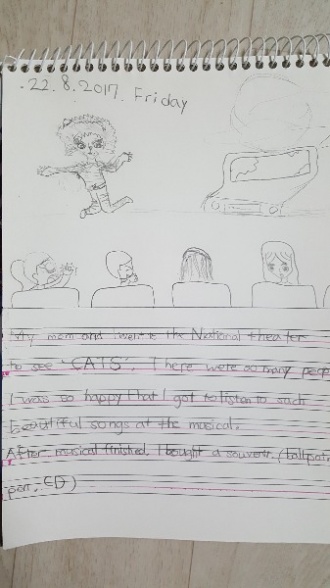 22.8.2017. Friday
My mom and I went to the National theater
to see "CATS". There were so many peop
I was so happy that I got to listen to such
beautiful songs at the musical.
After musical finished, I bought a souvenir. (ballpoint
pen, CD)